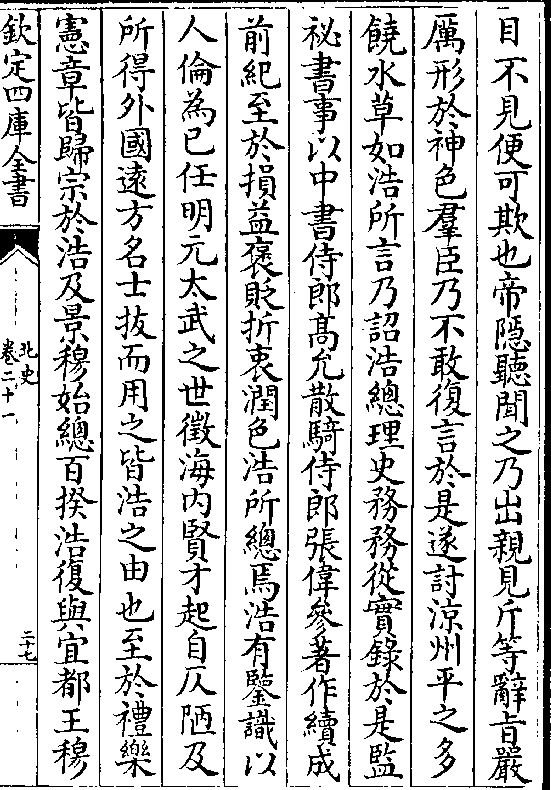 目不見便可欺也帝隱聽聞之乃出親見斤等辭旨嚴
厲形於神色羣臣乃不敢復言於是遂討涼州平之多
饒水草如浩所言乃詔浩總理史務務從實錄於是監
祕書事以中書侍郎髙允散騎侍郎張偉參著作續成
前紀至於損益褒貶折衷潤色浩所總焉浩有鑒識以
人倫為已任明元太武之世徵海内賢才起自仄陋及
所得外國遠方名士拔而用之皆浩之由也至於禮樂
憲章皆歸宗於浩及景穆始總百揆浩復與宜都王穆
欽定四庫全書
北史
卷二十一
二十七